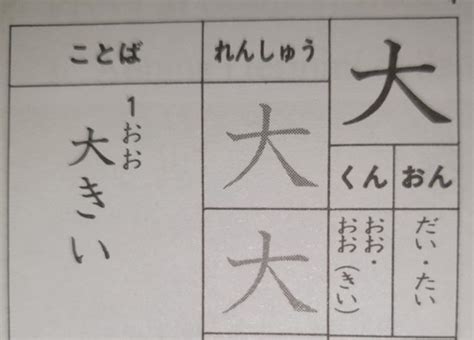 大
おん
だい・たい
くん
おお・
おお(きい)
れんしゅう
大
大
ことば
1 おお
大きい